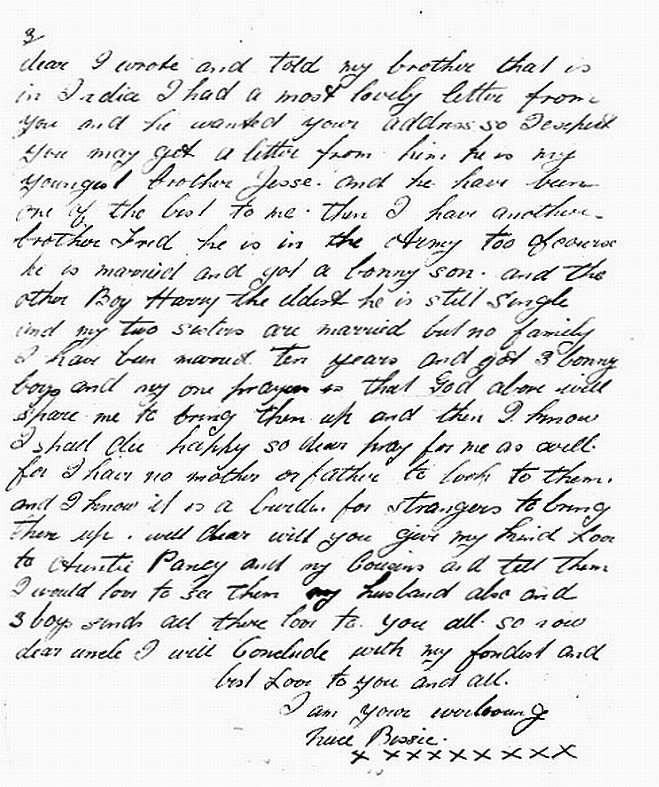 3
dear I wrote and told my brother that is
in India I had a most lovely letter from
you and he wanted your address so I expect
you may get a letter from him he is my
youngest brother Jesse. and he have been
one of the best to me. then I have another
brother Fred he is in the Army too of course
he is married and got a bonny son. and the
other Boy Harry the eldest he is still single
and my two sisters are married but no family
I have been married ten years and got 3 bonny
boys and my one prayer is that God above will
spare me to bring them up and then I know
I shall die happy so dear pray for me as well.
for I have no mother or father to look to them.
and I know it is a burden for strangers to bring
them up. well dear will you give my kind Love
to Auntie Pancy and my Cousins and tell them
I would love to see them my husband also and
3 boys sends all there love to you all. so now
dear uncle I will Conclude with my fondest and
best Love to you and all.
I am your
Niece Bessie.
x x x x x x x x x